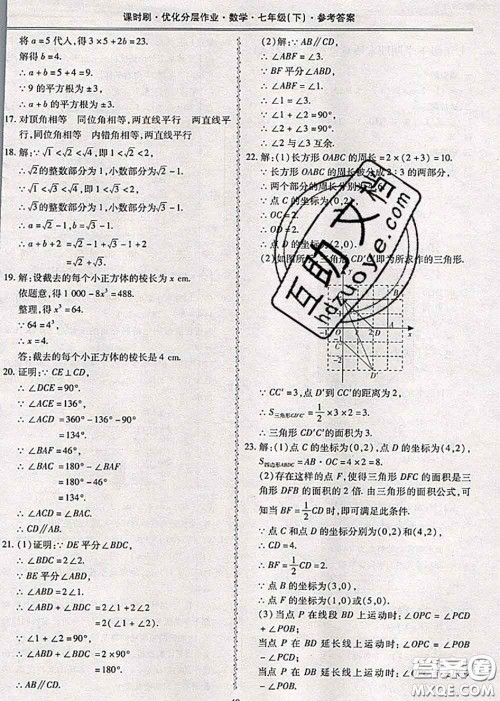 课时刷·优化分层作业·数学·七年级(下)·参考答案
将 a=5 代入,得 3×5+2b=23.
解得 b=4.
∴ a+b=5+4=9.
∵ 9 的平方根为±3,
∴ a+b 的平方根为±3.
17. 对顶角相等 同位角相等,两直线平行 两直线平
行,同位角相等 内错角相等,两直线平行
18. 解:∵√1<√2<√4,即 1<√2<2,
∴√2的整数部分为 1,小数部分为√2-1.
∵√1<√3<√4,即 1<√3<2,
∴√3的整数部分为 1,小数部分为√3-1.
=√2+√3.
19. 解:设截去的每个小正方体的棱长为 x cm.
依题意,得 1 000-8x³=488.
整理,得 x³=64.
∵ 64=4³,
∴ x=4.
答:截去的每个小正方体的棱长是 4 cm.
20. 证明:∵ CE⊥CD,
∴ ∠DCE=90°.
∵ ∠ACE=136°,
∴ ∠ACD=360°-136°-90°
=134°.
∵ ∠BAF=46°,
∴ ∠BAC=180°-∠BAF
=180°-46°
=134°.
∴ ∠ACD=∠BAC.
∴ CD∥AB.
21. (1)证明:∵ DE 平分∠BDC,
∴ ∠BDC=2∠1.
∵ BE 平分∠ABD,
∴ ∠ABD=2∠2.
∴ ∠ABD+∠BDC=2∠1+2∠2
=2(∠1+∠2)
=2×90°
=180°.
∴ AB∥CD.
(2)解:∵ AB∥CD,
∴ ∠ABF=∠3.
∵ BF 平分∠ABD,
∴ ∠2=∠ABF.
∴ ∠2=∠3.
∵ ∠1+∠2=90°,
∴ ∠1+∠3=90°.
∴ ∠2 与∠3 互余.
22. 解:(1)长方形 OABC 的周长=2×(2+3)=10.
∵ 长方形 OABC 的周长被分成 2:3 两部分,
∴ 两个部分的周长
∵ 点 C 的坐标为(0,2),
∴ OC=2.
∴ OD=2.
∴ 点 D 的坐标为(2,0).
(2)如图所示,三角形 CD'C'即为所求作的三角形.
∵ CC'=3,点 D'到 CC'的距离为 2,
∴ S三角形CD'C'=1/2×3×2=3.
∴ 三角形 CD'C'的面积为 3.
23. 解:(1)点 C 的坐标为(0,2),点 D 的坐标为(4,2),
S四边形ABDC=AB·OC=4×2=8.
(2)存在这样的点 F,使得三角形 DFC 的面积是三角
形 DFB 的面积的 2 倍.由三角形的面积公式,可
知当 BF=1/2CD 时,即可满足此条件.
∵ 点 C 和点 D 的坐标分别为(0,2)和(4,2),
∴ CD=4.
∴ BF=1/2CD=2.
∵ 点 B 的坐标为(3,0),
∴ 点 F 的坐标为(1,0)或(5,0).
(3)当点 P 在线段 BD 上运动时:∠OPC=∠PCD
+∠POB;
当点 P 在 BD 延长线上运动时:∠OPC=∠POB
-∠PCD;
当点 P 在 DB 延长线上运动时:∠OPC=∠PCD
互助文档
hdzuoye.com
答案圈
MXQE.COM